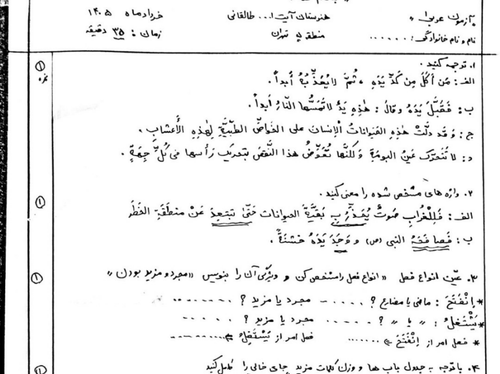 آزمون عربی ۱ هنرستان آیت ا... طالقانی خرداد ماه ۱۴۰۵
نام و نام خانوادگی: ....... منطقه ۵ تهران زمان: ۳۵ دقیقه
۱. ترجمه کنید.
الف: مَن أَكَلَ مِن كَدِّ يَدِهِ، ثُمَّ لا يُعَذِّبُهُ أَبداً.
ب: فَقَبَّلَ يَدَهُ وقالَ: هٰذِهِ يَدٌ لا تَمَسُّها النّارُ أبداً.
ج: وَقَد دَلَّت هٰذِهِ الحَيَواناتُ الإنسانَ على الخَواصِّ الطِّبّيَّةِ لِهٰذِهِ الأعشابِ.
د: لا تَتَحَرَّكُ عَينُ البومَةِ وَلٰكِنَّها تُعَوِّضُ هذا النَّقصَ بِتَحريكِ رَأسِها في كُلِّ جِهَةٍ.
۲. واژه های مشخص شده را معنی کنید.
الف: فَلِلغُرابِ صَوتٌ يُحَذِّرُ بِهِ بَقيَّةَ الحيوانات حَتّى تَبتَعِدَ عَنْ مِنطَقَةِ الخَطَر
ب: فَصافَحَهُ النبی (ص) و وَجَدَ يَدَهُ خَشِنَةً.
۳. عیّن انواع فعل «انواع فعل را مشخص کن و ویژگی آن را بنویس «مجرد و مزید بودن»
* اِنْفَتَحَ: ماضی یا مضارع؟ ..... مجرد یا مزید؟ .......
* يَشْتَغِلُ: " یا "؟ ..... مجرد یا مزید؟ .......
* فعل امر از اِنْفَتَحَ ......... فعل امر از يَسْتَغِلُ ........
۴. باتوجه به جدول باب ها و وزن کلمات مزید جای خالی را کامل کنید